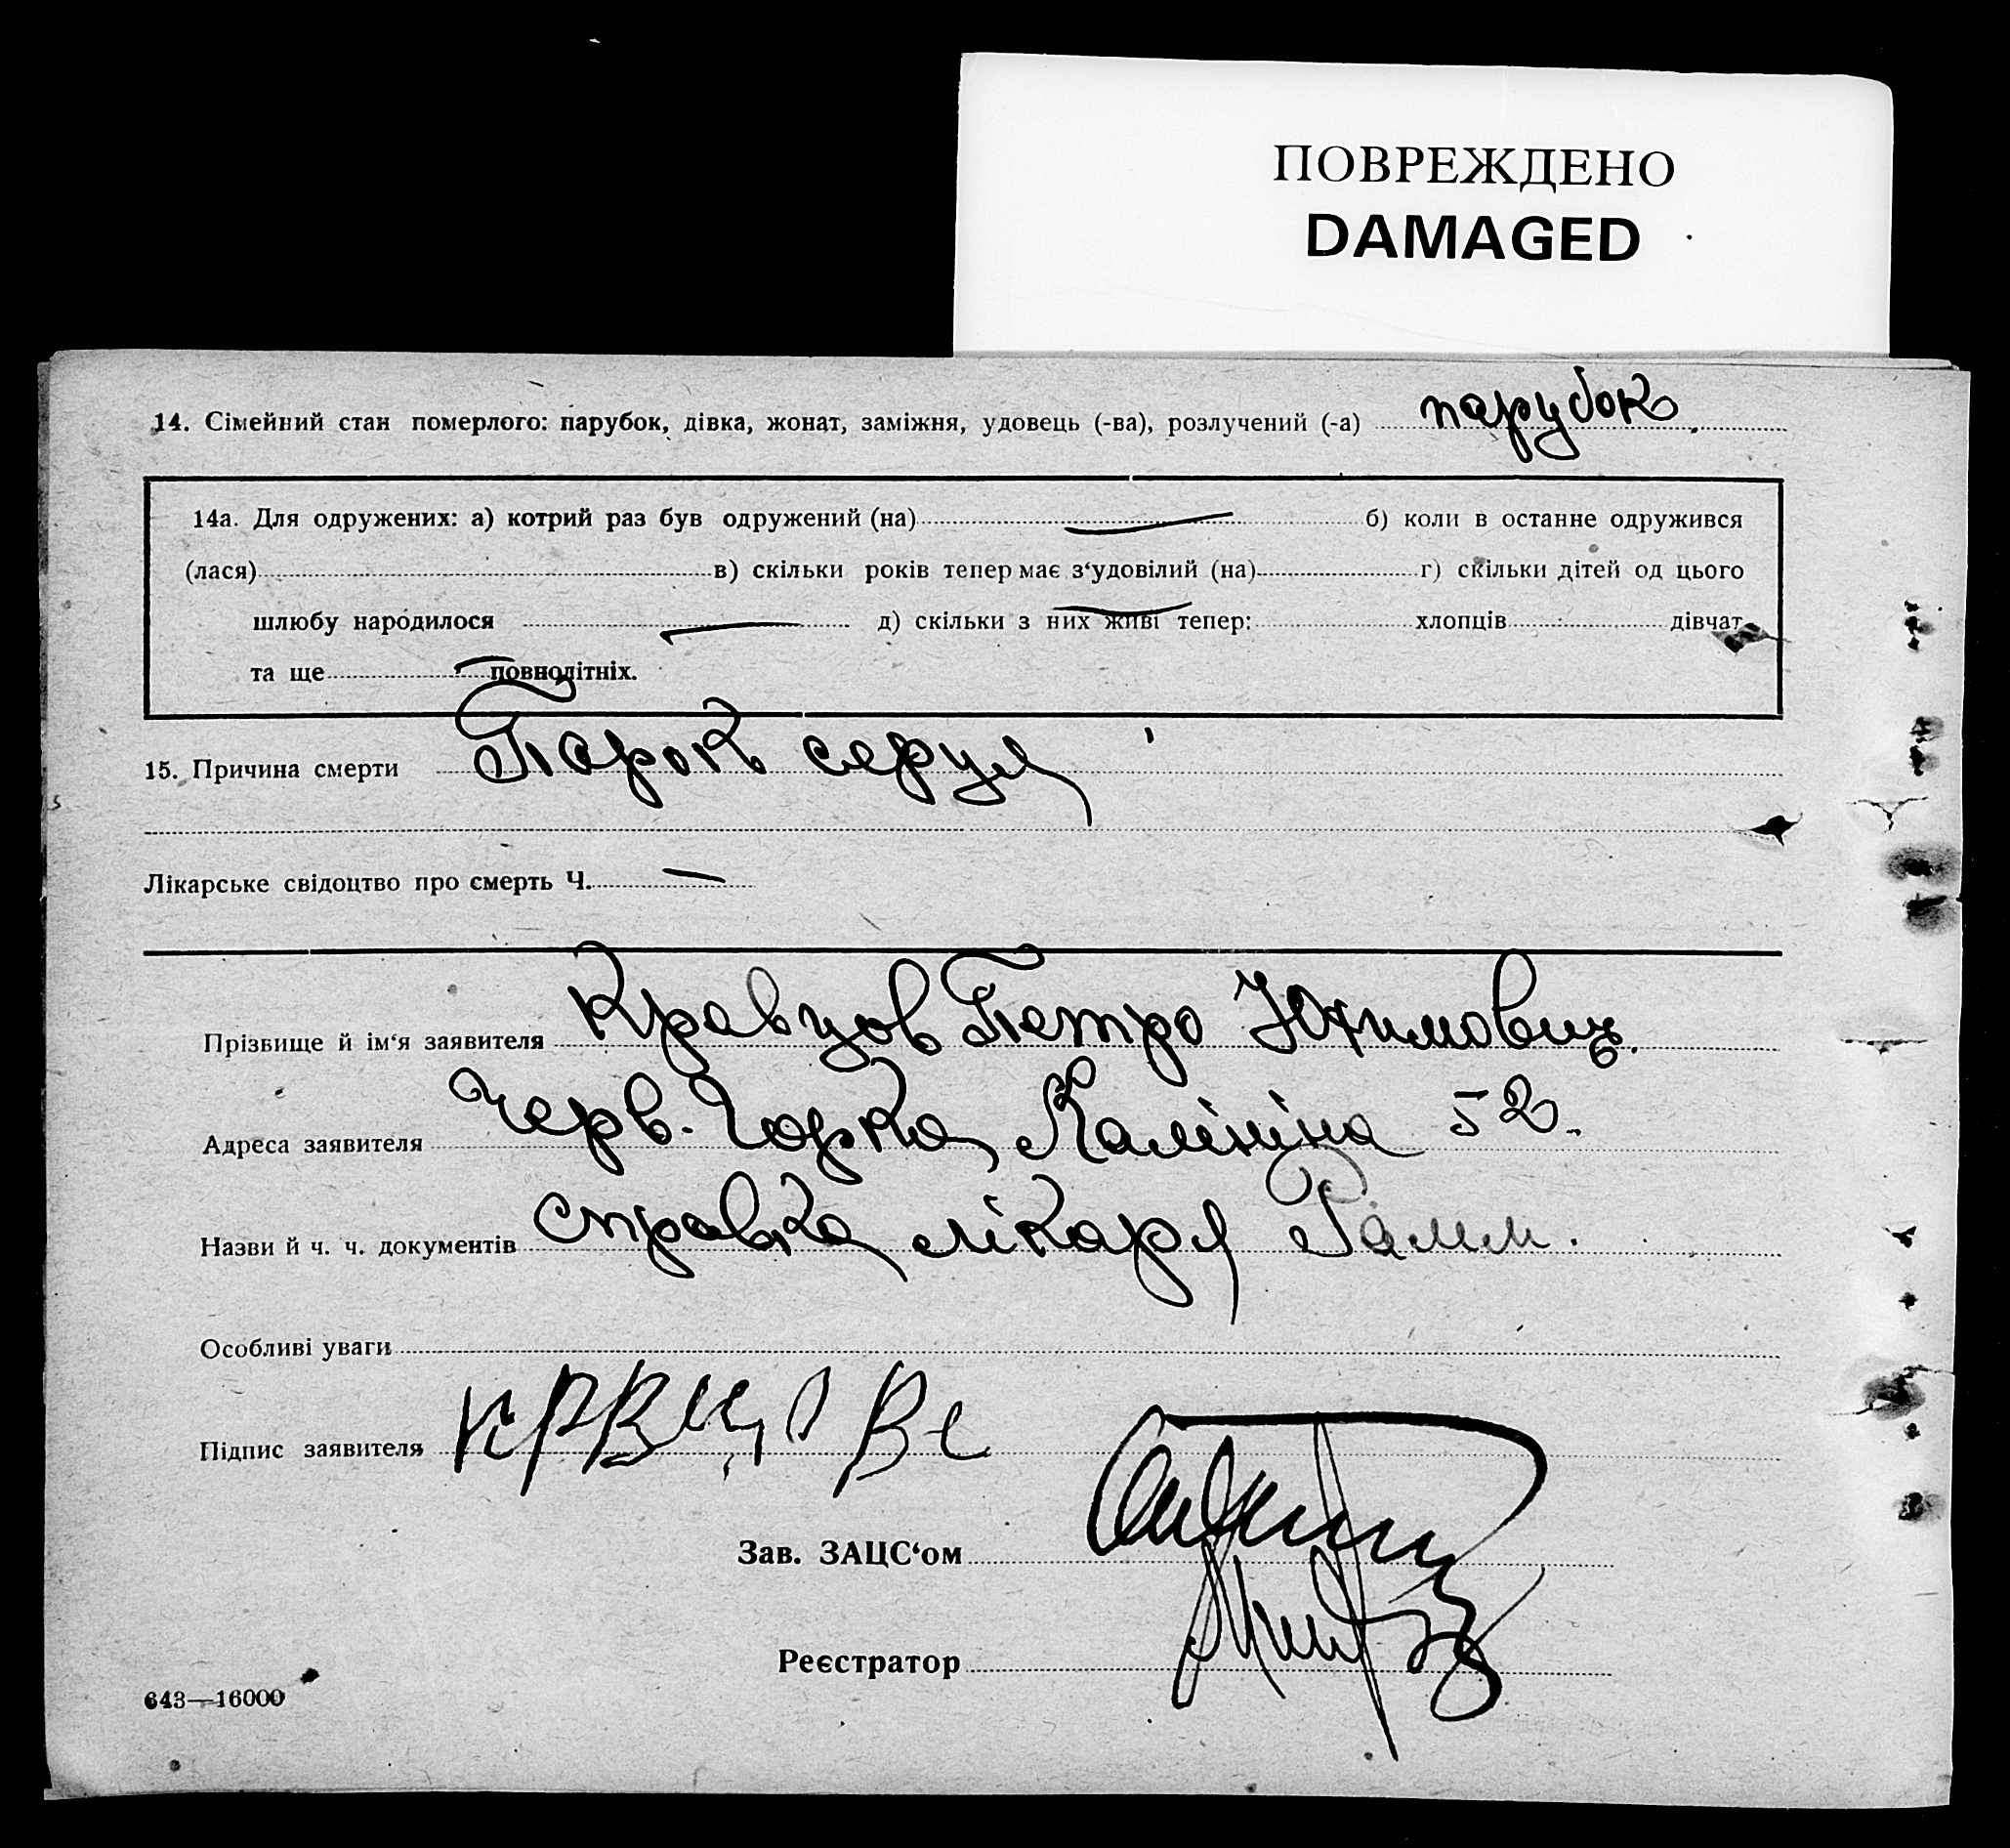 ПОВРЕЖДЕНО
DAMAGED
14. Сімейний стан померлого: парубок, дівка, жонат, заміжня, удовець (-ва), розлучений (-а) парубок.
14а. Для одружених: а) котрий раз був одружений (на) б) коли в останне одружився
(лася) в) скільки років тепер має з‘удовілий (на) г) скільки дітей од цього
шлюбу народилося д) скільки з них живі тепер: хлопців дівчат
та ще повнолітніх.
15. Причина смерти Порок серця
Лікарське свідоцтво про смерть Ч.
Прізвище й ім‘я заявителя Кравцов Петро Юхимович.
Адреса заявителя Черв. Горка Калініна 52.
Назви й ч. ч. документів справка лікаря
Особливі уваги
Підпис заявителя
Зав. ЗАЦС‘ом
Реєстратор
643—16000